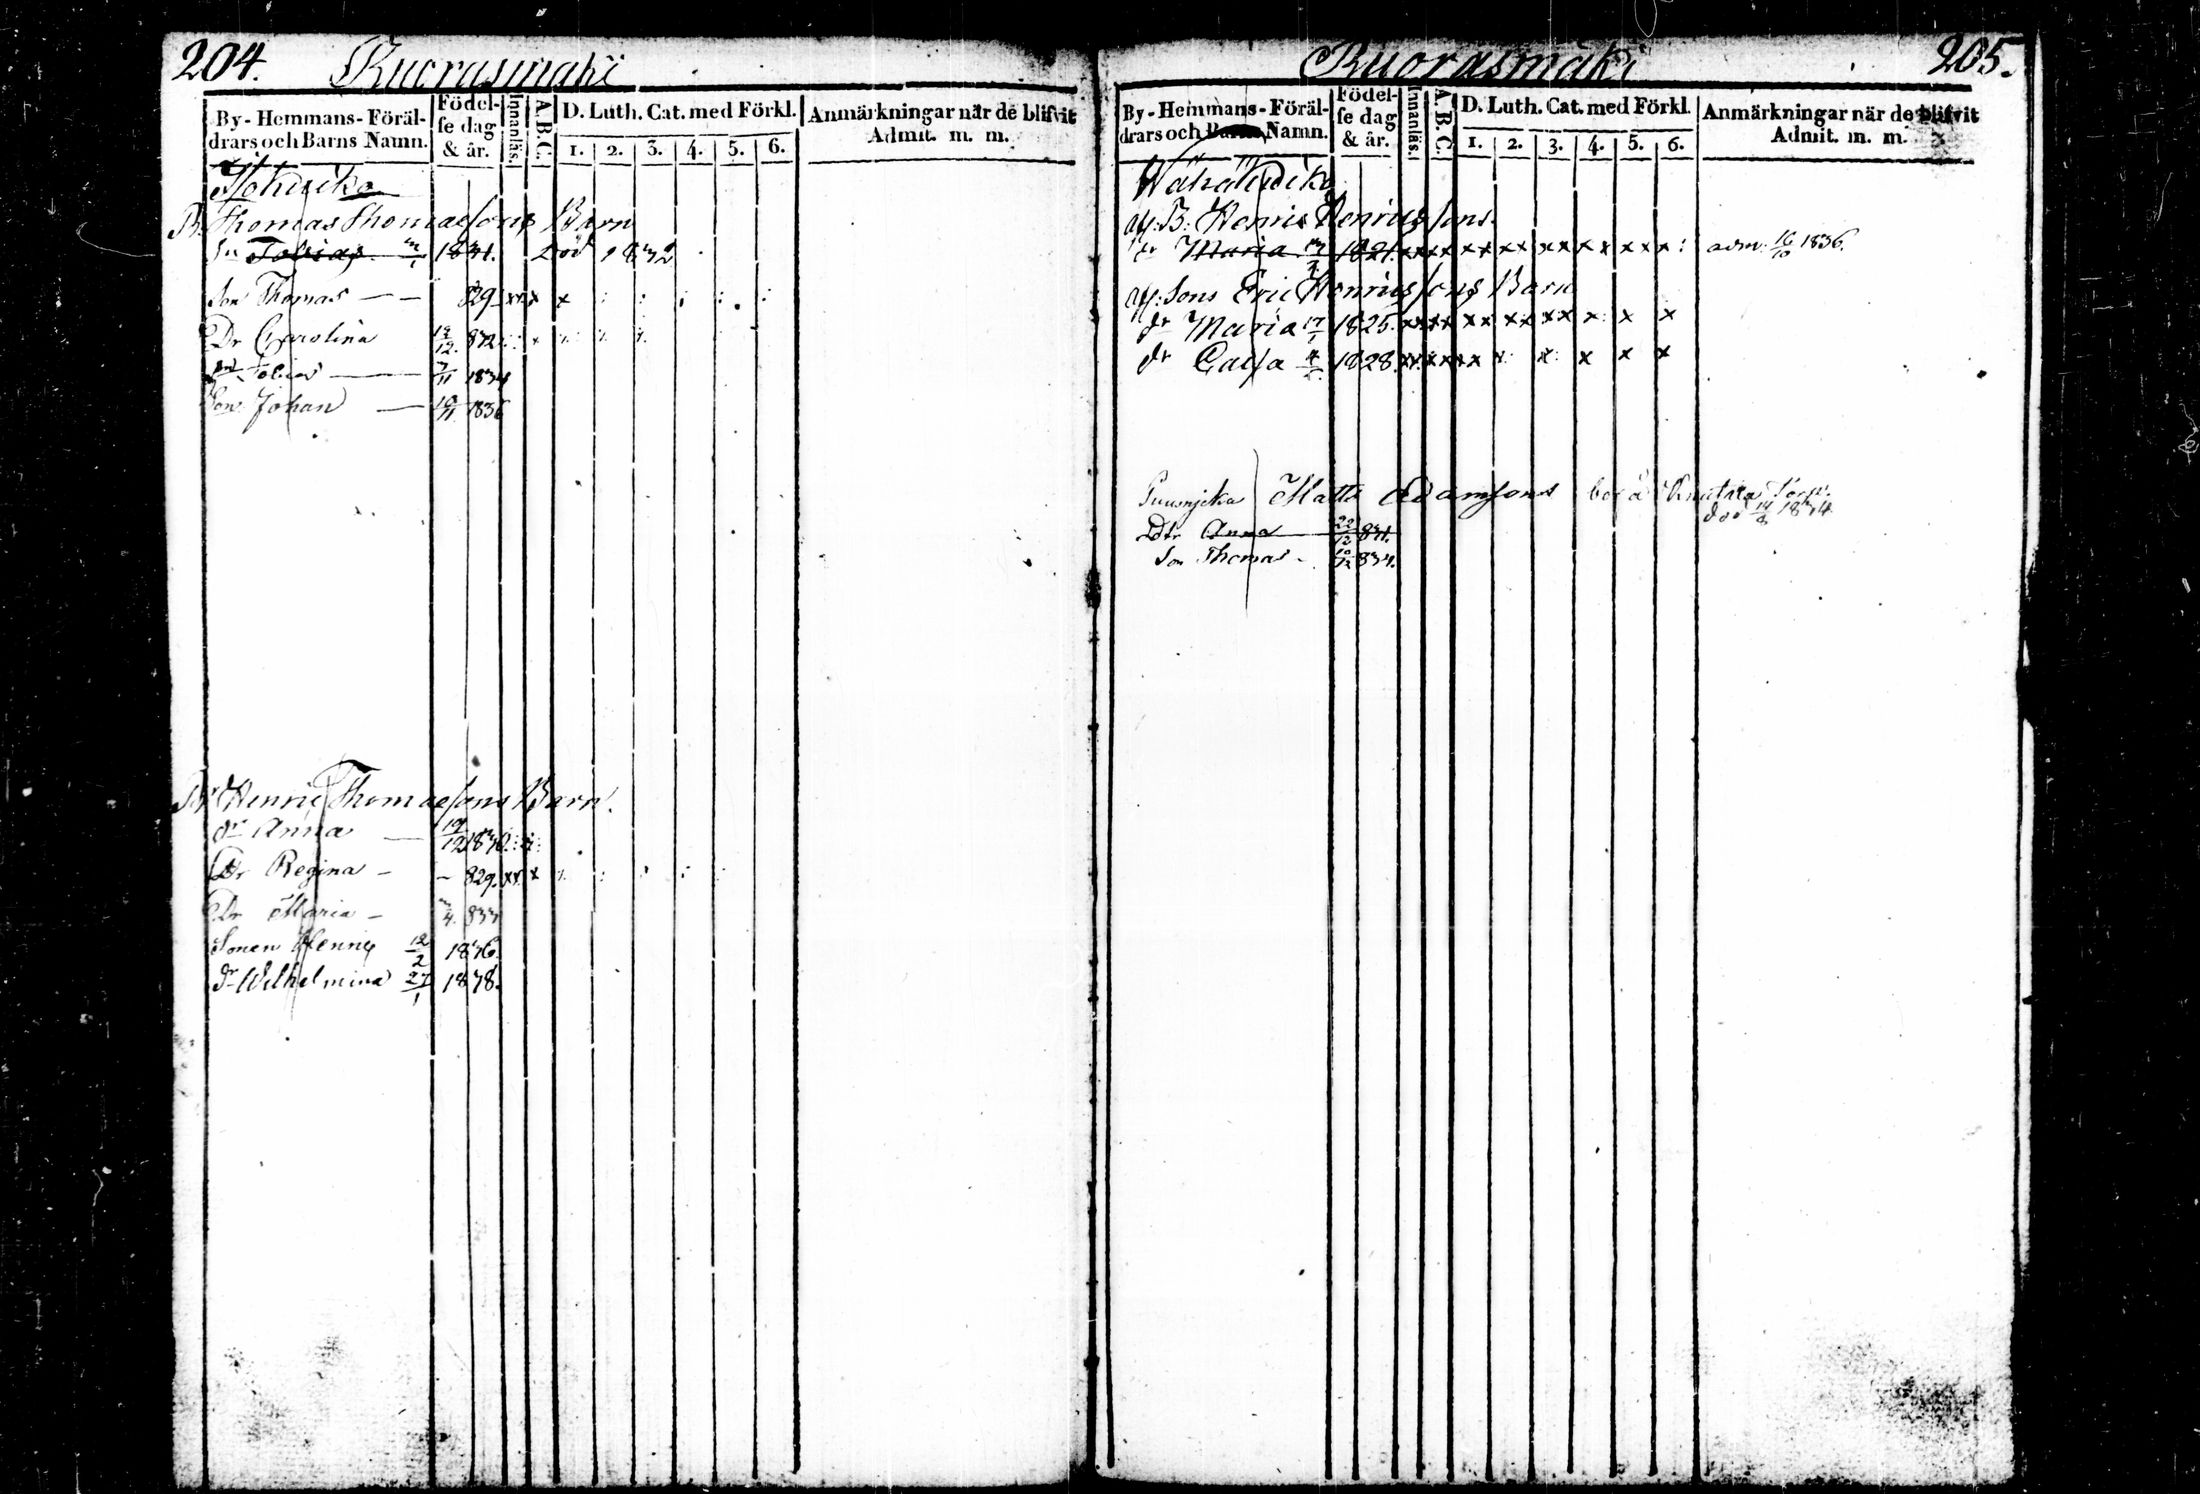 204. Ruorasmäki
By - Hemmans - Föräl- drars och Barns Namn. Födel- se dag & år. Innanläs. A.B.C. D. Luth. Cat. med Förkl. 1. 2. 3. 4. 5. 6. Anmärkningar när de blifvit Admit. m. m.
B. Thomas Thomaesons Barn
Sn Tobias 1831. Död 1832
Son Thomas — — 829 xx x x
Dr Carolina 12/12. 832
Tobias — 11 1834
Son Johan — 10/11 1836
Br Henric Thomaesons Barn.
dr Anna — 19/12 1830
Dr Regina - - 829. xx x
Dr Maria - 4. 833
Sonen Henric 12/2 1836.
dr Wilhelmina 27/1 1838.
Ruorasmäki 205.
By - Hemmans - Föräl- drars och Barns Namn. Födel- se dag & år. Innanläs. A.B.C. D. Luth. Cat. med Förkl. 1. 2. 3. 4. 5. 6. Anmärkningar när de blifvit Admit. m. m.
af: B: Henric Henricssons
dr Maria 1821. xx xx xx xx xx xx xx x: adm. 16/10 1836.
af: Sons Eric Henricssons Barn
dr Maria 17/1 1825. xx xx xx xx xx x: x x
dr Caisa 1828. xx xx xx x: x: x x x
Matts Adamsons bor å Torp.
död 14/8 1834
Dtr Anna 22/12 831.
Son Thomas - 10/12 834.